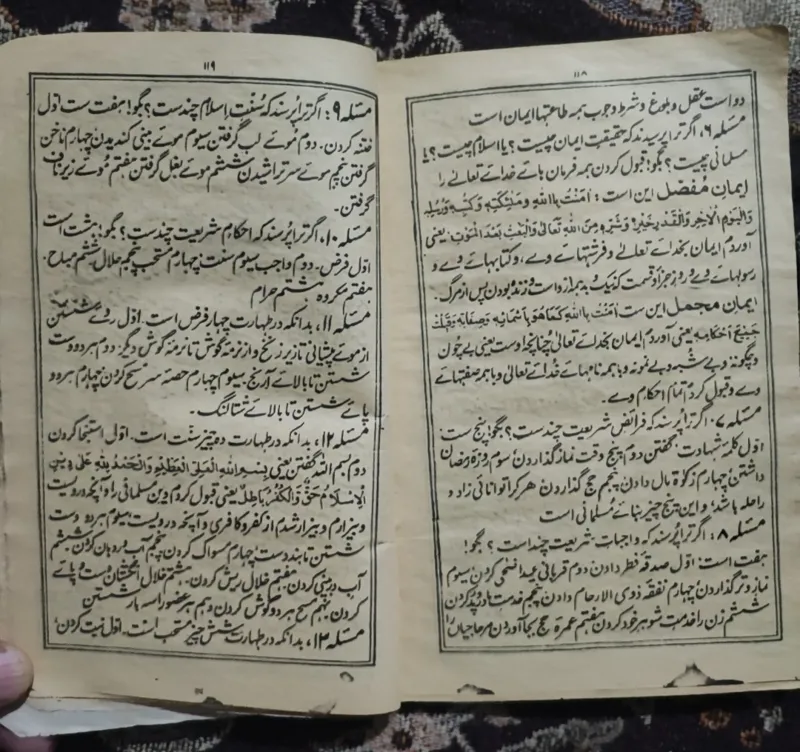 ۱۱۸
دو است عقل و بلوغ و شرط وجوب ہمہ طاعتہا ایمان است
مسئلہ ۶، اگر ترا پرسیدند کہ حقیقت ایمان چیست؟ یا اسلام چیست؟ یا
مسلمانی چیست؟ بگو! قبول کردن ہمہ فرمان ہائے خدائے تعالےٰ را
ایمان مفصل این است: اٰمَنْتُ بِاللهِ وَمَلٰٓئِكَتِهٖ وَكُتُبِهٖ وَرُسُلِهٖ
وَالْيَوْمِ الْاٰخِرِ وَالْقَدْرِ خَيْرِهٖ وَشَرِّهٖ مِنَ اللهِ تَعَالٰى وَالْبَعْثِ بَعْدَ الْمَوْتِ۔ یعنی
آوردم ایمان بخدائے تعالےٰ و فرشتہائے وے، و کتابہائے وے و
رسولہائے وے و روز جزا و قسمت کنیک و بد ہمہ ازوست و زندہ بودن پس از مرگ۔
ایمان مجمل این ست اٰمَنْتُ بِاللهِ كَمَا هُوَ بِاَسْمَائِهٖ وَصِفَاتِهٖ وَقَبِلْتُ
جَمِيْعَ اَحْكَامِهٖ یعنی آوردم ایمان بخدائے تعالیٰ چنانچہ اوست یعنی بے چون
و بیچگونہ و بے شبہ و بے نمونہ و باہمہ نامہائے خدائے تعالیٰ و باہمہ صفتہائے
وے و قبول کردم تمام احکام وے۔
مسئلہ ۷، اگر ترا پرسند کہ فرائض شریعت چند ست؟ بگو! پنج ست
اول کلمہ شہادت گفتن دوم پنج وقت نماز گذاردن سوم روزہ رمضان
داشتن چہارم زکوٰۃ مال دادن پنجم حج گذاردن ہر کرا توانائی زاد و
راحلہ باشد؛ و این پنج چیز بنائے مسلمانی است
مسئلہ ۸: اگر ترا پرسند کہ واجبات شریعت چند است؟ بگو!
ہفت است: اول صدقہ فطر دادن دوم قربانی عید اضحی کردن سیوم
نماز وتر گذاردن چہارم نفقہ ذوی الارحام دادن پنجم خدمت مادر و پدر کردن
ششم زن را خدمت شوہر خود کردن ہفتم عمرہ حج بجا آوردن مر حاجیان را
۱۱۹
مسئلہ ۹: اگر ترا پرسند کہ سنت اسلام چند ست؟ بگو! ہفت ست اول
ختنہ کردن۔ دوم موئے لب گرفتن سیوم موئے بینی کندیدن چہارم ناخن
گرفتن پنجم موئے سر تراشیدن ششم موئے بغل گرفتن ہفتم موئے زیر ناف
گرفتن۔
مسئلہ ۱۰، اگر ترا پرسند کہ احکام شریعت چند ست؟ بگو! ہشت است
اول فرض۔ دوم واجب سیوم سنت چہارم مستحب پنجم حلال۔ ششم مباح۔
ہفتم مکروہ ہشتم حرام
مسئلہ ۱۱، بدانکہ در طہارت چہار فرض است۔ اول روے شستن
از موئے پیشانی تا زیر زنخ و از نرمہ گوش تا نرمہ گوش دیگر؛ دوم ہر دو دست
شستن تا بالائے آرنج۔ سیوم چہارم حصہ سر مسح کردن؛ چہارم ہر دو
پائے شستن تا بالائے شتالنگ۔
مسئلہ ۱۲، بدانکہ در طہارت دہ چیز سنت است۔ اول استنجا کردن
دوم بسم اللہ گفتن یعنی بِسْمِ اللهِ الْعَلِيِّ الْعَظِيْمِ وَالْحَمْدُ لِلّٰهِ عَلٰى دِيْنِ
الْاِسْلَامِ حَقٌّ وَالْكُفْرُ بَاطِلٌ یعنی قبول کردم دین مسلمانی را و آنچہ درویست
و بیزارم و بیزار شدم از کفر و کافری و آنچہ درویست، سیوم ہر دو دست
شستن تا بند دست چہارم مسواک کردن پنجم آب در دہان کردن ششم
آب در بینی کردن۔ ہفتم خلال ریش کردن۔ ہشتم خلال انگشتان دست و پائے
کردن۔ نہم مسح ہر دو گوش کردن و دہم ہر عضو را سہ بار شستن
مسئلہ ۱۳، بدانکہ در طہارت شش چیز مستحب است۔ اول نیت کردن؛